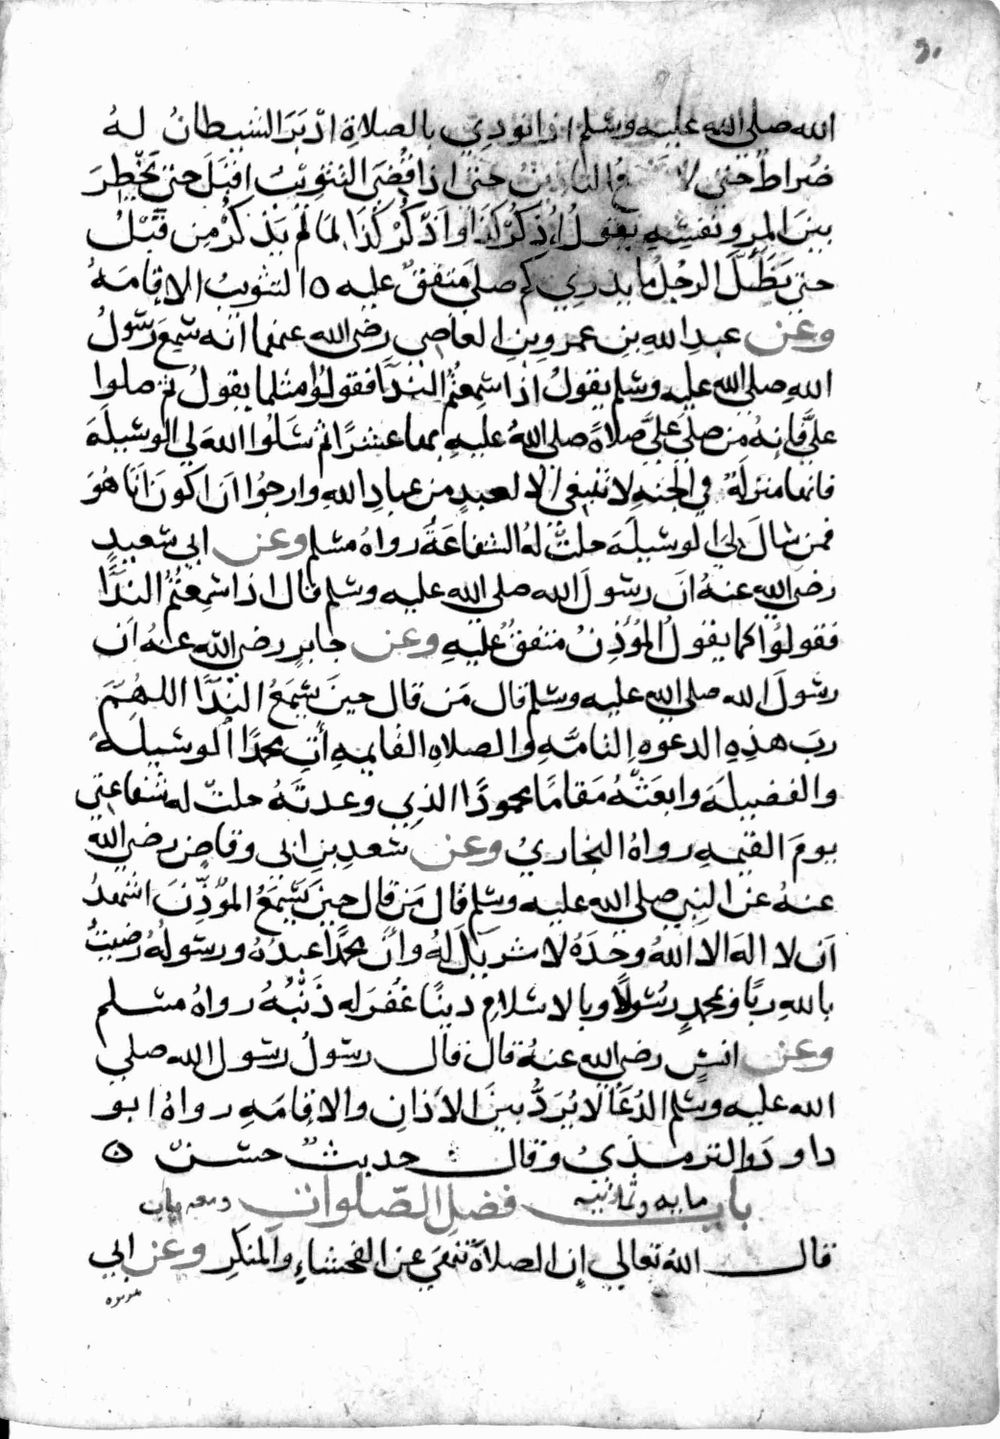 ٩٠
الله صلى الله عليه وسلم اذا نودي بالصلاة ادبر الشيطان له
ضراط حتى لا يسمع التاذين حتى اذا قضى التثويب اقبل حتى يخطر
بين المرو ونفسه يقول اذكر كذا واذكر كذا لما لم يذكر من قبل
حتى يظل الرجل ما يدري كم صلى متفق عليه ٥ التثويب الاقامة
وعن عبد الله بن عمرو بن العاصي رضي الله عنهما انه سمع رسول
الله صلى الله عليه وسلم يقول اذا سمعتم الندآ فقولوا مثلما يقول ثم صلوا
علي فانه من صلى علي صلاة صلى الله عليه بها عشرا ثم سلوا الله لي الوسيلة
فانها منزلة في الجنة لا تنبغي الا لعبد من عباد الله وارجوا ان اكون انا هو
فمن سال لي الوسيلة حلت له الشفاعة رواه مسلم وعن ابي سعيد
رضي الله عنه ان رسول الله صلى الله عليه وسلم قال اذا سمعتم الندآ
فقولوا كما يقول المؤذن متفق عليه وعن جابر رضي الله عنه ان
رسول الله صلى الله عليه وسلم قال من قال حين يسمع الندآ اللهم
رب هذه الدعوة التامة والصلاة القايمة آت محمدا الوسيلة
والفضيلة وابعثه مقاما محمودا الذي وعدته حلت له شفاعتي
يوم القيمة رواه البخاري وعن سعد بن ابي وقاص رضي الله
عنه عن النبي صلى الله عليه وسلم قال من قال حين يسمع المؤذن اشهد
ان لا اله الا الله وحده لا شريك له وان محمدا عبده ورسوله رضيت
بالله ربا وبمحمد رسولا وبالاسلام دينا غفر له ذنبه رواه مسلم
وعن انس رضي الله عنه قال قال رسول رسول الله صلى
الله عليه وسلم الدعآ لا يرد بين الاذان والاقامة رواه ابو
داود والترمذي وقال حديث حسن ٥
باب مايه وثمانيه فضل الصلوات ومعه باب
قال الله تعالى إن الصلاة تنهى عن الفحشاء والمنكر وعن ابي
هريره